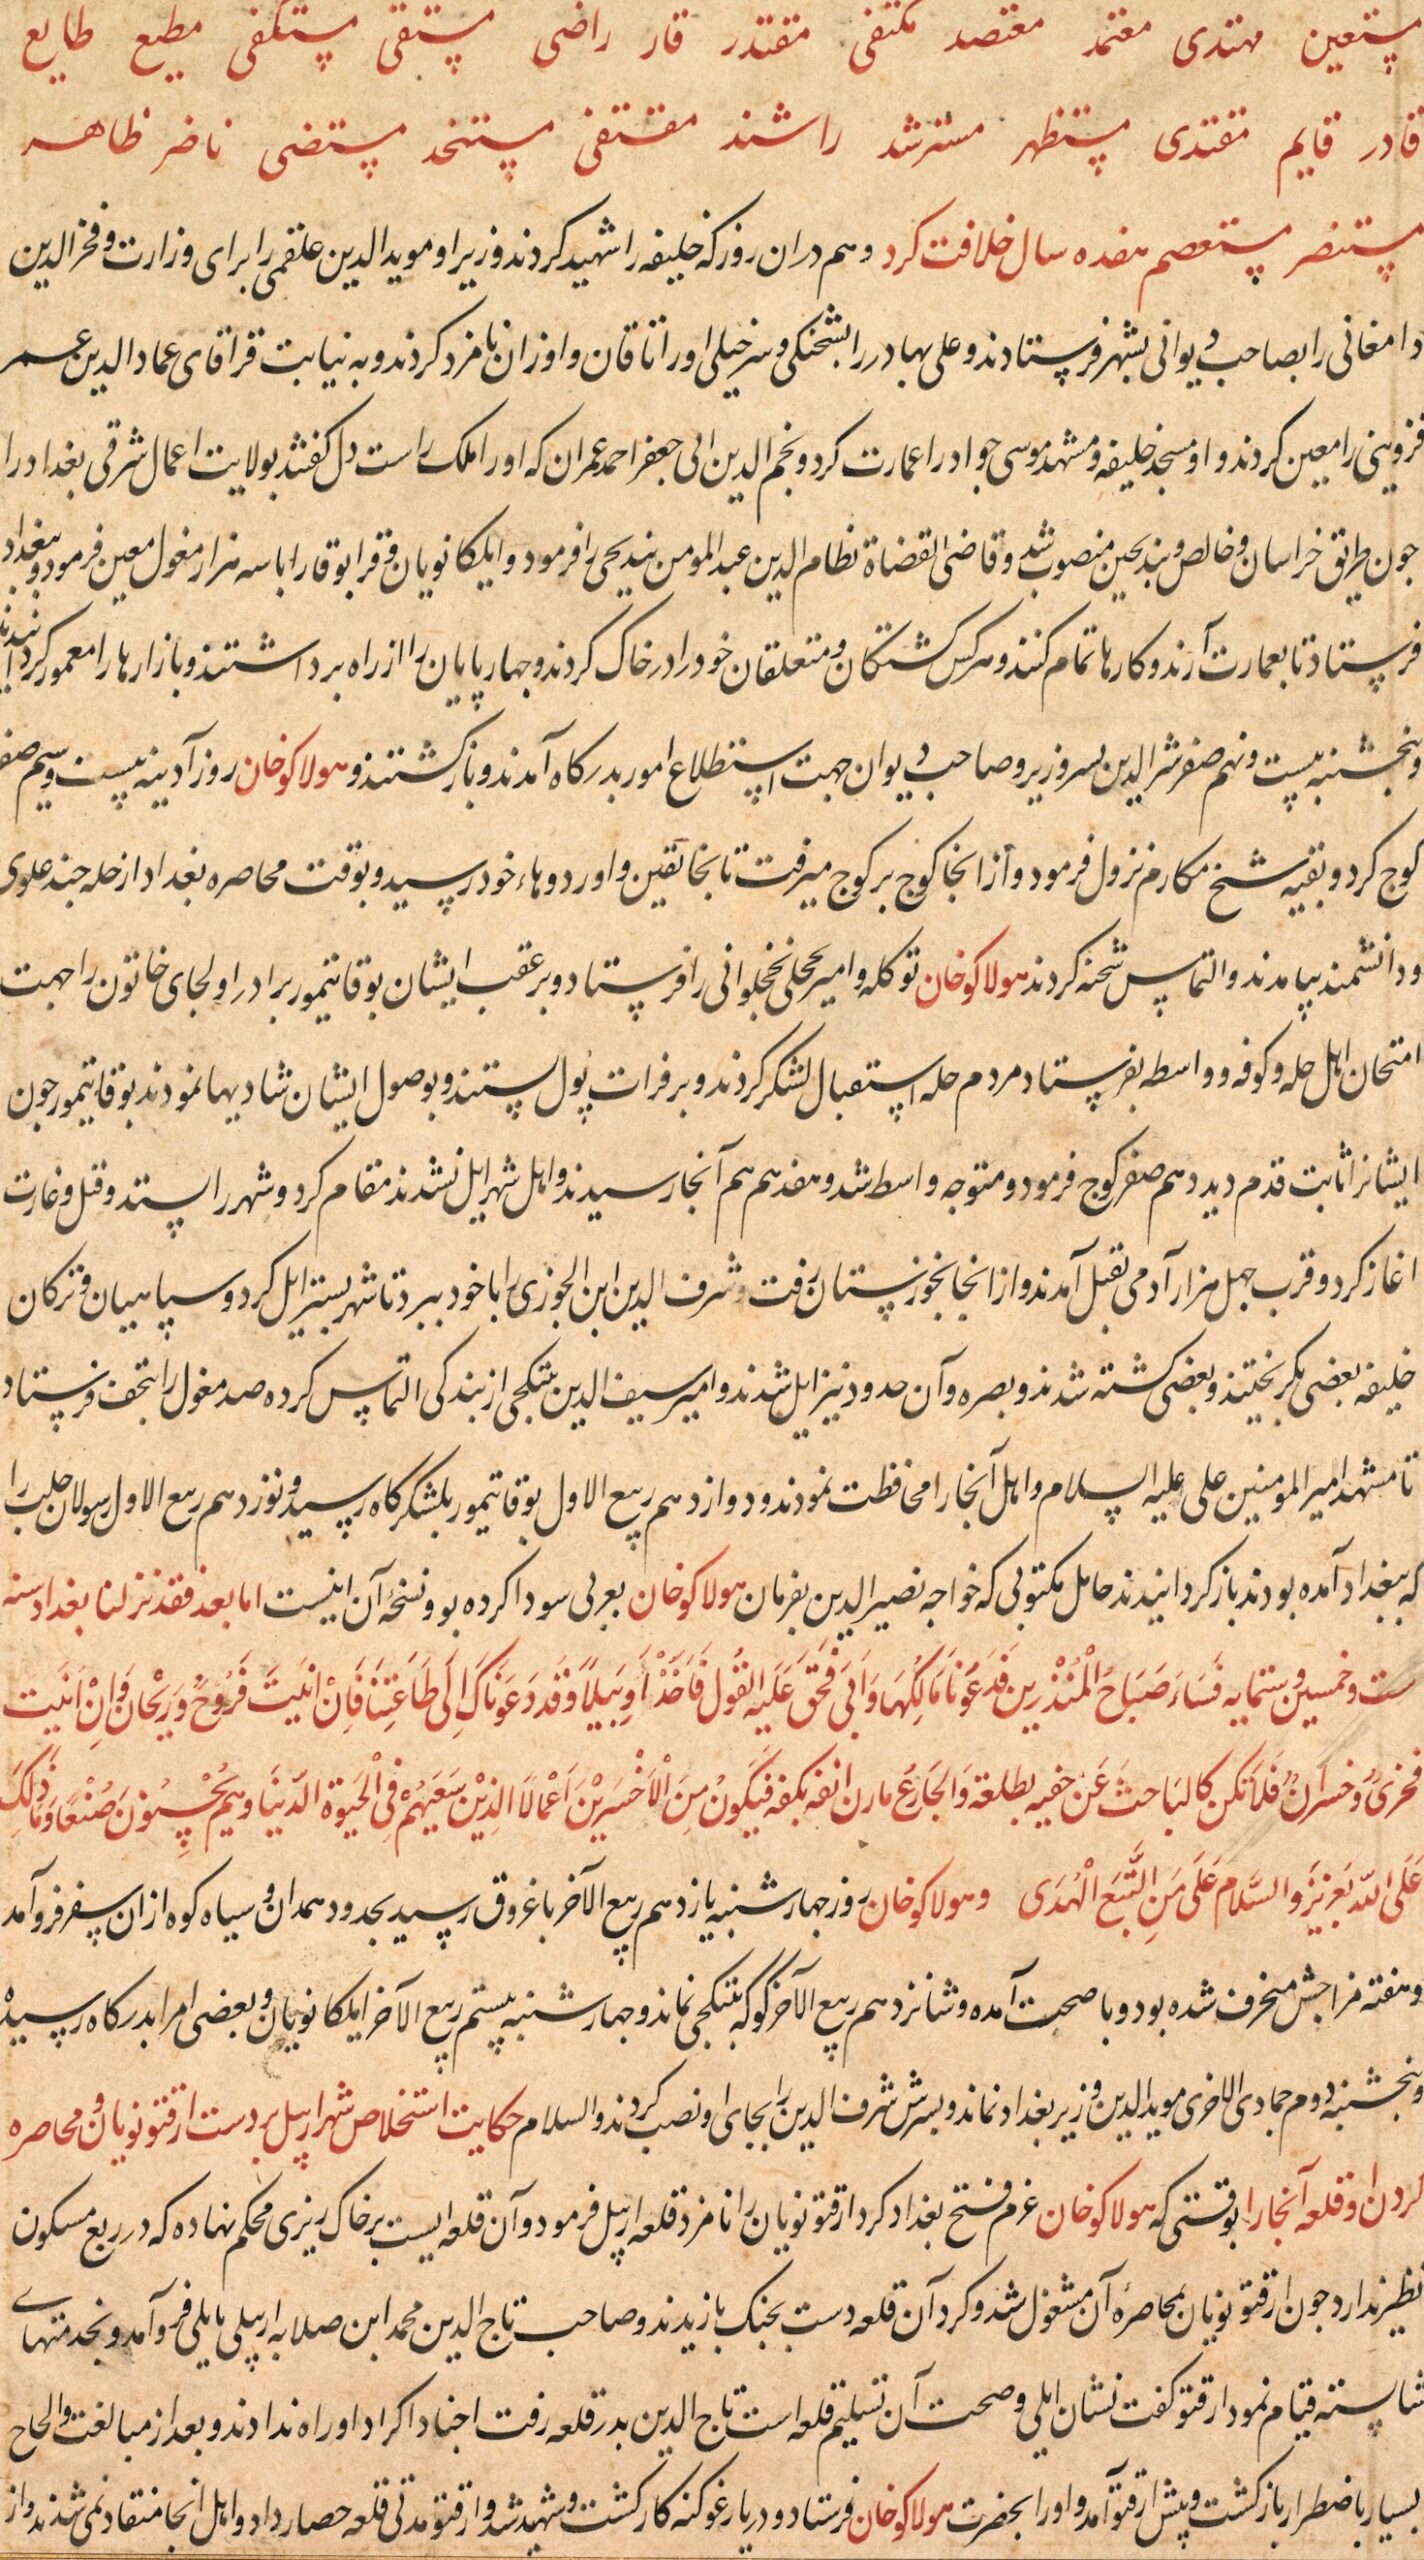 مستعین مهتدی معتمد معتضد مکتفی مقتدر قار راضی متقی مستکفی مطیع طایع
قادر قایم مقتدی مستظهر مسترشد راشد مقتفی مستنجد مستضی ناصر ظاهر
مستنصر مستعصم هفده سال خلافت کرد و هم دران روز که خلیفه را شهید کردند وزیر او موید الدین علقمی را برای وزارت و فخر الدین
دامغانی را بصاحب دیوانی بشهر فرستادند و علی بهادر را بشحنکی و سرخیلی اورتاقان و اوزان نامزد کردند و به نیابت قراقای عماد الدین عمر
قزوینی را معین کردند و او مسجد خلیفه و مشهد موسی جواد را عمارت کرد و نجم الدین ابی جعفر احمد عمران که او را ملک راست دل کفتند بولایت اعمال شرقی بغداد را
جون طریق خراسان و خالص و بندیجین منصوب شد و قاضی القضاة نظام الدین عبد المومن بندیجی را فرمود و ایلکا نویان و قرا بوقا را با سه هزار مغول معین فرمود و ببغداد
فرستاد تا بعمارت آرند و کارها تمام کنند و هر کس کشتکان و متعلقان خود را در خاک کردند و جهارپایان را از راه برداشتند و بازارها را معمور کردانیدند
و پنجشنبه بیست و نهم صفر شرف الدین پسر وزیر و صاحب دیوان جهت استطلاع امور بدرکاه آمدند و بازکشتند و هولاکو خان روز آدینه بیست و سیم صفر
کوج کرد و بقیه شیخ مکارم نزول فرمود و از انجا کوج بر کوج میرفت تا بخانقین و اوردوهاء خود رسید و بوقت محاصره بغداد از حله جند علوی
و دانشمند بیامدند و التماس شحنه کردند هولاکو خان توکله و امیر محلی نخجوانی را فرستاد و بر عقب ایشان بوقا تیمور برادر اولجای خاتون را جهت
امتحان اهل حله و کوفه و واسطه بفرستاد مردم حله استقبال لشکر کردند و بر فرات پول بستند و بوصول ایشان شادیها نمودند بوقا تیمور جون
ایشانرا ثابت قدم دید دهم صفر کوج فرمود و متوجه واسط شد و هفدهم هم آنجا رسیدند و اهل شهر ایل نشدند مقام کرد و شهر را بستد و قتل و غارت
اغاز کرد و قرب جهل هزار آدمی بقتل آمدند و از انجا بخوزستان رفت و شرف الدین ابن الجوزی را با خود ببرد تا شهر بستر ایل کرد و سپاهیان و ترکان
خلیفه بعضی بکریختند و بعضی کشته شدند و بصره و آن حدود نیز ایل شدند و امیر سیف الدین بتکجی از بندکی التماس کرده صد مغول را بنجف فرستاد
تا مشهد امیر المومنین علی علیه السلام و اهل آنجا را محافظت نمودند و دوازدهم ربیع الاول بوقا تیمور بلشکرکاه رسید و نوزدهم ربیع الاول رسولان حلب را
که ببغداد آمده بودند بازکردانیدند حامل مکتوبی که خواجه نصیر الدین بفرمان هولاکو خان بعربی سودا کرده بو و نسخه آن اینست اما بعد فقد نزلنا بغداد سنه
ست و خمسین و ستمایه فَسَاءَ صَبَاحُ الْمُنْذَرِین فَدَعَوْنَا مَالِکَهَا وَ اَبَی فَحَقَّ عَلَیْهِ القَول فَاَخَذْنَاهُ اَخْذًا وَبِیلًا وَ قَد دَعَوْنَاکَ اِلَی طَاعَتِنَا فَاِنْ اَتَیْتَ فَرَوْحٌ وَ رَیْحَان وَ اِنْ اَبَیتَ
فَخِزْیٌ وَ خُسْرَانٌ فَلَا تَکُن کَالبَاحِثِ عَنْ حتفه بظلفه وَ الجَادِعِ مارن انفه بکفه فَتَکُونَ مِنَ الْاَخْسَرِیْنَ اَعْمَالًا الذِیْنَ سَعْیُهُم فِی الْحَیوةِ الدُّنیَا وَ هُم یُحْسِنُونَ صُنْعًا وَ مَا ذَلِکَ
عَلَی اللّه بِعَزِیز وَ السَّلَام عَلَی مَنِ اتَّبَعَ الْهُدَی و هولاکو خان روز جهارشنبه یازدهم ربیع الآخر با غروق رسید بحدود همدان و سیاه کوه ازان سفر فرو آمد
و هفته مزاجش منحرف شده بود و با صحت آمده و شانزدهم ربیع الآخر کوکه بتکجی نماند و جهارشنبه بیستم ربیع الآخر ایلکا نویان و بعضی امرا بدرکاه رسید
و پنجشنبه دوم جمادی الاخری موید الدین وزیر بغداد نماند و پسرش شرف الدین را بجای او نصب کردند و السلام حکایت استخلاص شهر اربیل بر دست ارقتو نویان و محاصره
کردن او قلعه آنجا را بوقتی که هولاکو خان عزم فتح بغداد کرد ارقتو نویان را نامزد قلعه اربیل فرمود و آن قلعه ایست بر خاک ریزی محکم نهاده که در ربع مسکون
نظیر ندارد جون ارقتو نویان بمحاصره آن مشغول شد و کرد آن قلعه دست بجنک بازیدند و صاحب تاج الدین محمد ابن صلابه اربیلی بایلی فرو آمد و بخدمتهای
شایسته قیام نمود ارقتو کفت نشان ایلی و صحت آن تسلیم قلعه است تاج الدین بدر قلعه رفت اجناد اکراد او راه ندادند و بعد از مبالغت و الحاح
بسیار باضطرار بازکشت و پیش ارقتو آمد و او را بحضرت هولاکو خان فرستاد و در یارغو کنه کار کشت و شهید شد و ارقتو مدتی قلعه حصار داد و اهل انجا منقاد نمی شدند و از